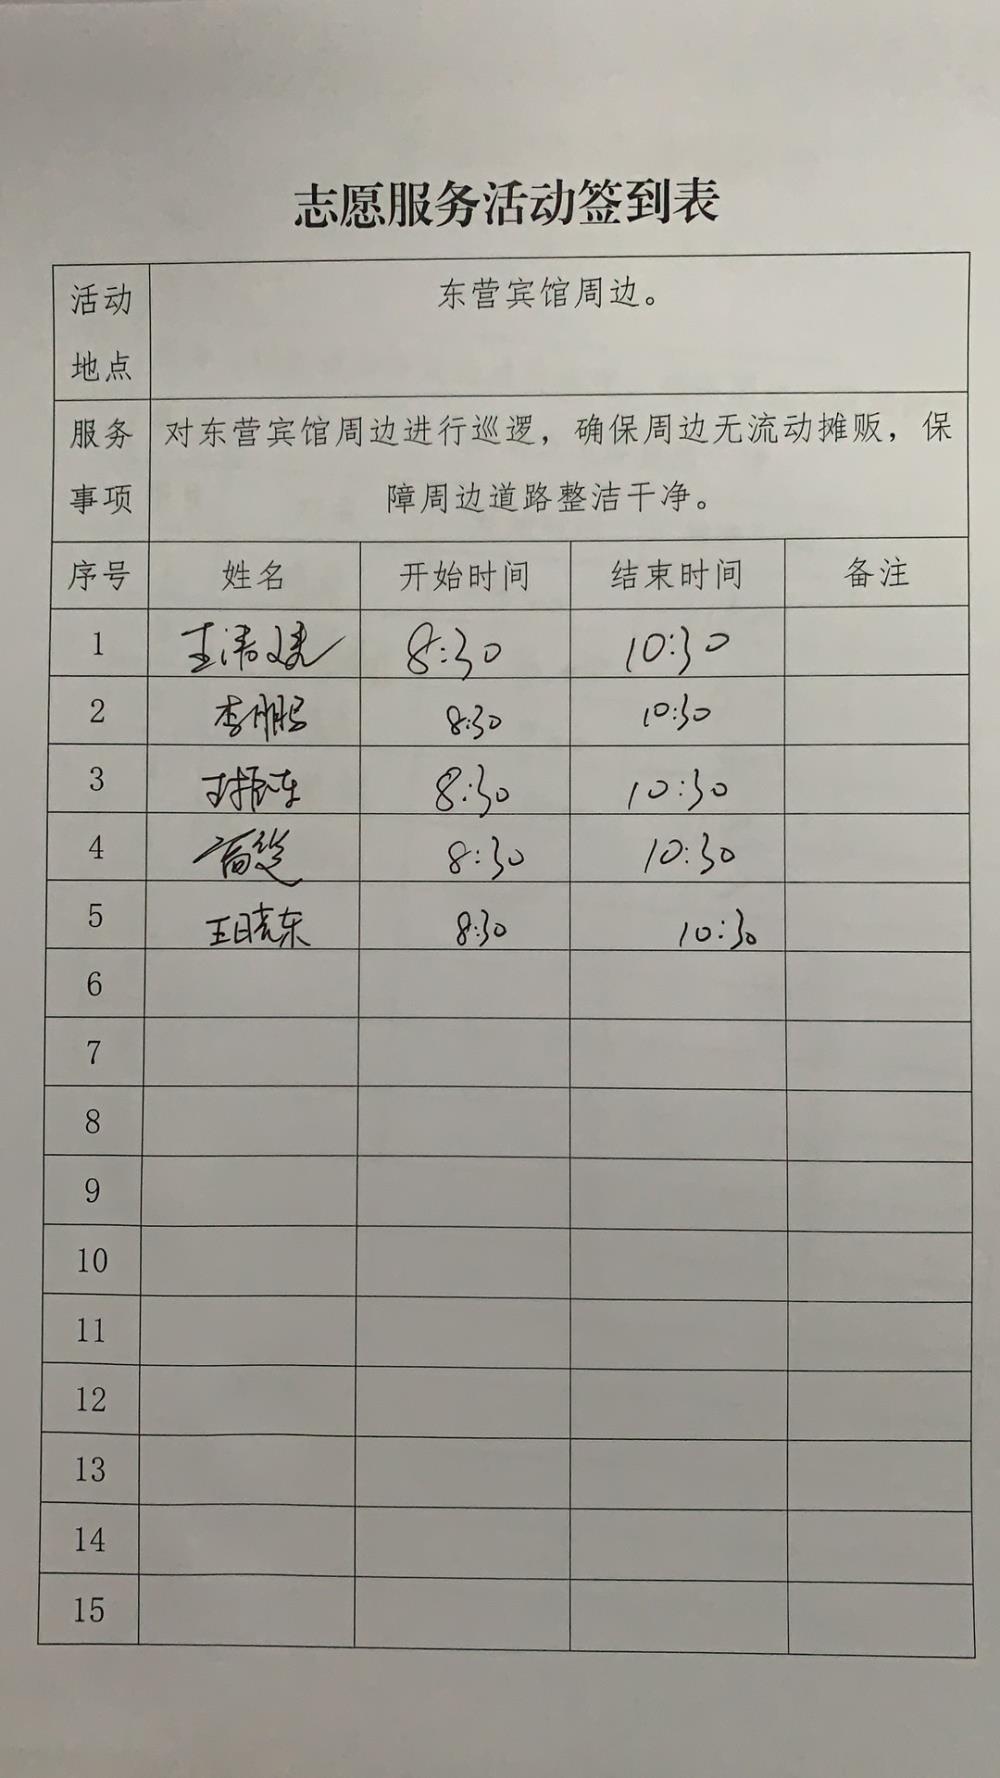 志愿服务活动签到表
活动地点 东营宾馆周边。
服务事项 对东营宾馆周边进行巡逻，确保周边无流动摊贩，保
障周边道路整洁干净。
序号 姓名 开始时间 结束时间 备注
1 8:30 10:30
2 李鹏 8:30 10:30
3 王振东 8:30 10:30
4 8:30 10:30
5 王晓东 8:30 10:30
6
7
8
9
10
11
12
13
14
15